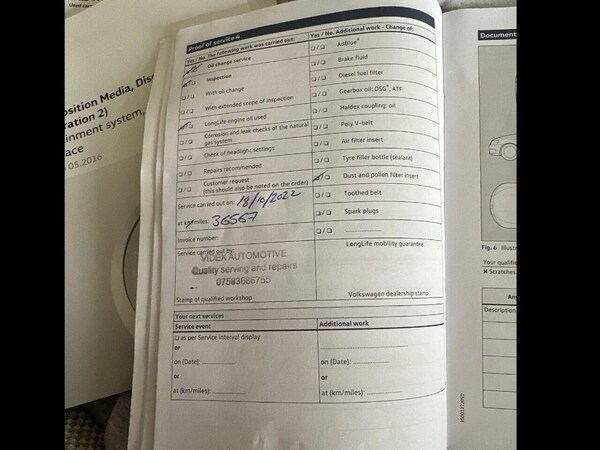 Proof of service 4
Yes / No. The following work was carried out:
Oil change service
Inspection
With oil change
With extended scope of inspection
LongLife engine oil used
Corrosion and leak checks of the natural
gas system
Check of headlight settings
Repairs recommended
Customer request
(this should also be noted on the order)
Service carried out on: 18/10/2022
at km/miles: 36567
Invoice number:
Service carried out by:
VIDEX AUTOMOTIVE
Quality serving and repairs
07583686755
Stamp of qualified workshop
Yes / No. Additional work - Change of:
AdBlue®
Brake fluid
Diesel fuel filter
Gearbox oil: DSG®, ATF
Haldex coupling: oil
Poly V-belt
Air filter insert
Tyre filler bottle (sealant)
Dust and pollen filter insert
Toothed belt
Spark plugs
LongLife mobility guarantee
Volkswagen dealership stamp
Your next services
Service event
Additional work
as per Service interval display
or
on (Date):
or
at (km/miles):
on (Date):
or
at (km/miles):
osition Media, Disc
ration 2)
ainment system,
ace
05.2016
Document
Fig. 6 Illust
Your qualifie
Scratches
Am
Description